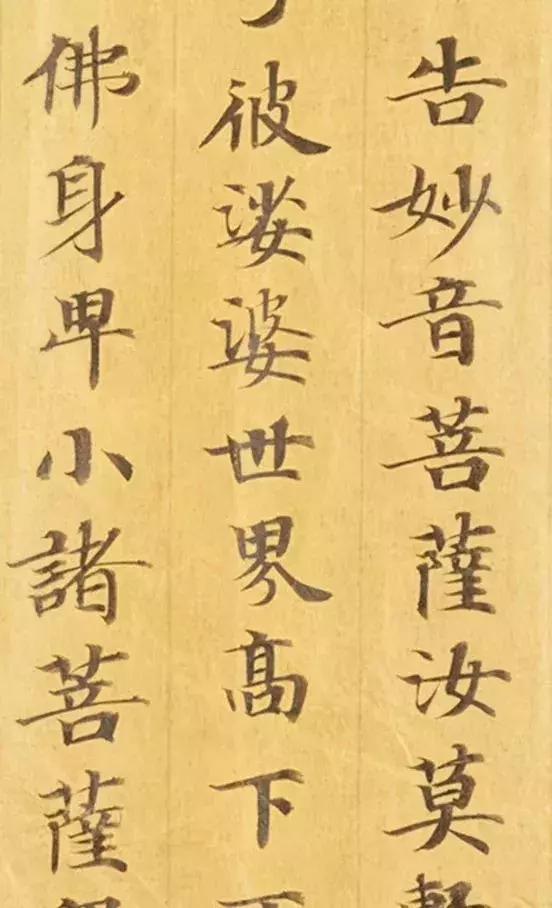 告妙音菩薩汝莫
彼娑婆世界髙下
佛身卑小諸菩薩